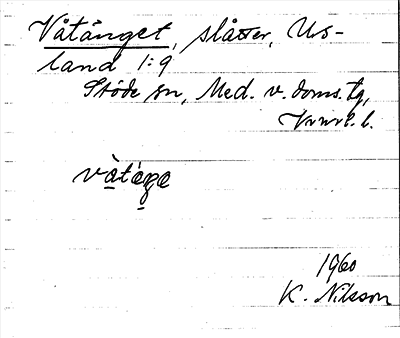 Våtänget, slåtter, Us-
land 1:9
Stöde sn, Med. v. doms. tg,
Vnrl. l.
våtǽŋe
1960
K. Nilsson